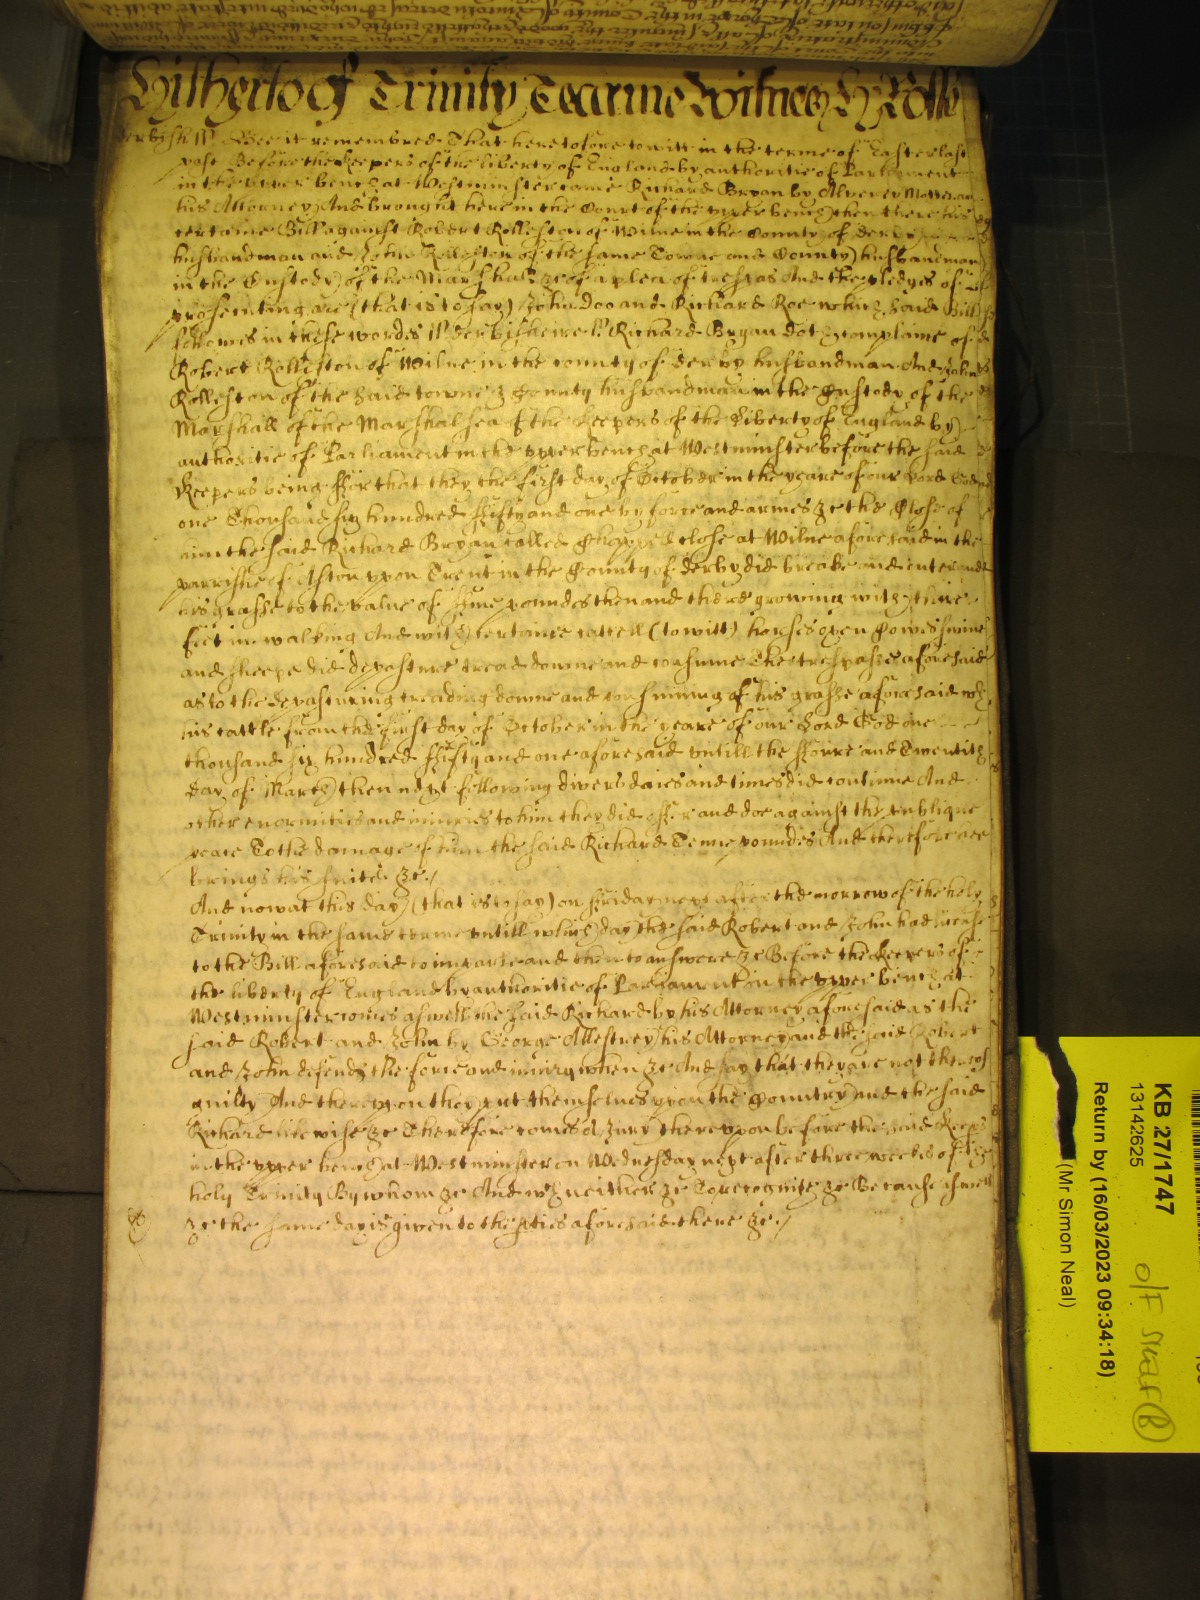 Hitherto of Trinity Tearme Witnes H Rolle
derbysh ss Bee it remembred That heretofore to witt in the terme of Easter last
past Before the Keepers of the liberty of England by authoritie of Parliament
in the upper bench at Westminster came Richard Bryan by
his Attorney And brought here in the Court of the upper bench then there his
certaine Bill against Robert Rolleston of Wilne in the County of derby
husbandman and John Rolleston of the same Towne and County husbandman
in the Custody of the Marshall &c of a plea of trespas And the pledges of
prosecuting are (that is to say) John Doo and Richard Roe which said Bill
followes in these wordes ss derbisheire ss Richard Bryan doth complaine of
Robert Rolleston of Wilne in the county of derby husbandman And John
Rolleston of the said towne & County husbandman in the Custody of the
Marshall of the Marshalsea of the Keepers of the Liberty of England by
authoritie of Parliament in the upper bench at Westminster before the said
Keepers being ffor that they the first day of October in the yeare of our Lord God
one Thousand six hundred ffifty and one by force and armes &c the Close of
him the said Richard Bryan called Chappell close at Wilne aforesaid in the
parrishe of Aston upon Trent in the County of derby did breake and enter and
his grasse to the value of ffive poundes then and there growing with there
feet in walking And with certaine cattell (to witt) horses oxen Cowes swine
and sheepe did depasture tread downe and consume The trespasse aforesaid
as to the depasturing treading downe and consuming of his grasse aforesaid wth
his cattle from the first day of October in the yeare of our Lord God one
thousand six hundred ffifty and one aforesaid untill the ffoure and Twentith
day of March then next following divers daies and times did continue And
other enormities and iniuries to him they did offer and doe against the publique
peace To the damage of him the said Richard Tenne poundes And therefore hee
brings his suite &c /
And now at this day (that is to say) on ffriday next after the morrow of the holy
Trinity in the same terme untill which day the said Robert and John had license
to the Bill aforesaid to imparle and then to answere &c Before the Keepers of
the liberty of England by authoritie of Parliament in the upper bench at
Westminster comes aswell the said Richard by his Attorney aforesaid as the
said Robert and John by George Allestrey his Attorney and the said Robert
and John defends the force and iniury when &c And say that they are not thereof
guilty And thereupon they put themselves upon the Country and the said
Richard likewise &c Therefore comes a Jury thereupon before the said Keeps
in the upper bench at Westminster on Wednesday next after three weekes of the
holy Trinity By whom &c And wch neither &c To recognize &c Because aswell
&c the same day is given to the pties aforesaid there &c /
KB 27/1747
13142625
Return by (16/03/2023 09:34:18)
(Mr Simon Neal)